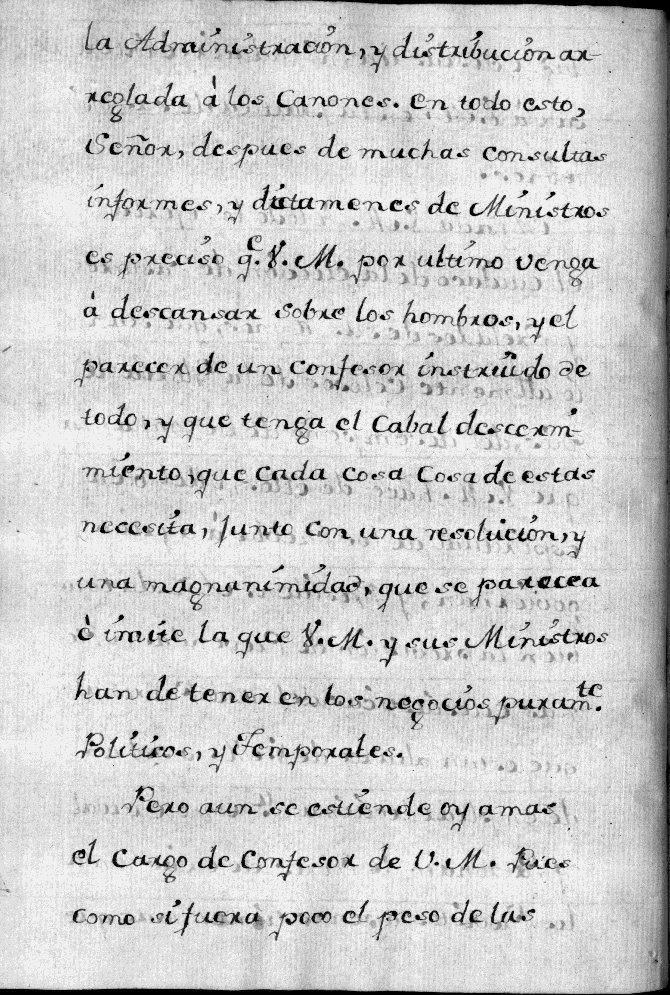 la Administracion, y distribucion ar-
reglada à los Canones. en todo esto,
Señor, despues de muchas consultas
informes, y dictamenes de Ministros
es preciso q.e V. M. por ultimo venga
à descansar sobre los hombros, y el
parecer de un Confesor instruido de
todo, y que tenga el Cabal descerni-
miento, que cada cosa Cosa de estas
necesita, Junto con una resolucion, y
una magnanimidad, que se parecea
ò imite la que V. M. y sus Ministros
han de tener en los negocios puram.te
Politicos, y Temporales.
Pero aun se estiende oy amas
el Cargo de Confesor de V. M. Pues
como si fuera poco el peso de las